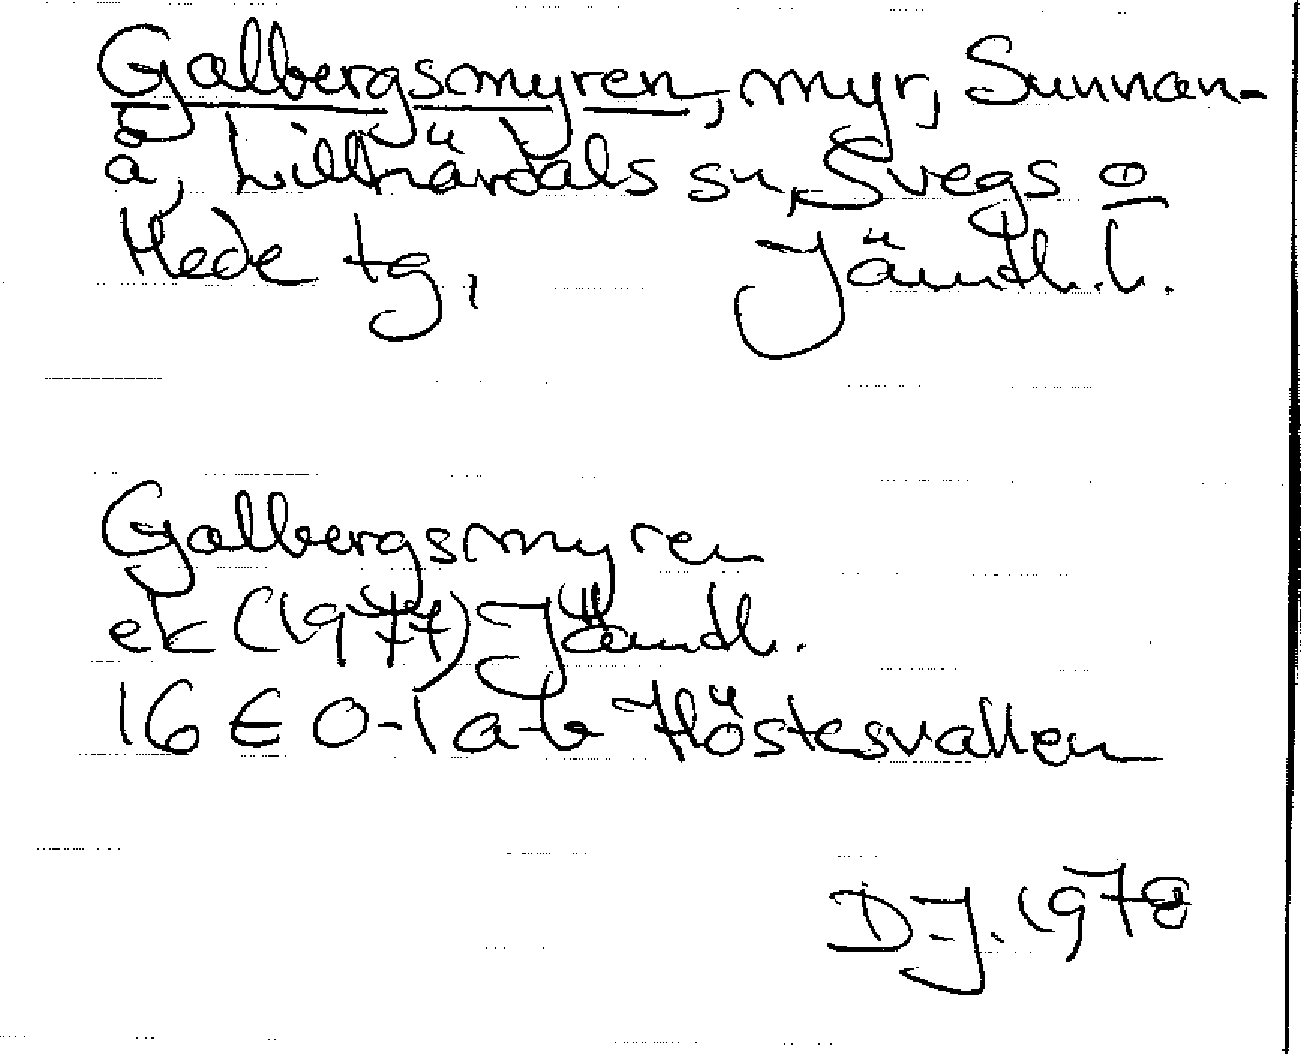 Galbergsmyren, myr, Sunnan-
å, Lillhärdals sn, Svegs o
Hede tg, Jämtl. l.
Galbergsmyren
ek (1977) Jämtl.
16 E 0-1 a-b Höstesvallen
D.J. 1978